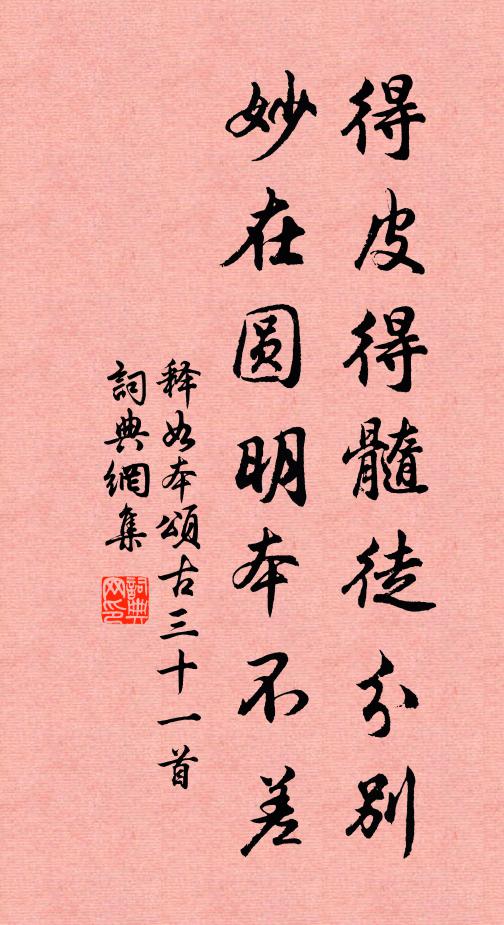 得皮得髓徒分别
妙在圆明本不差
释如本頌古三十一首
詞典網集
詞典
网印